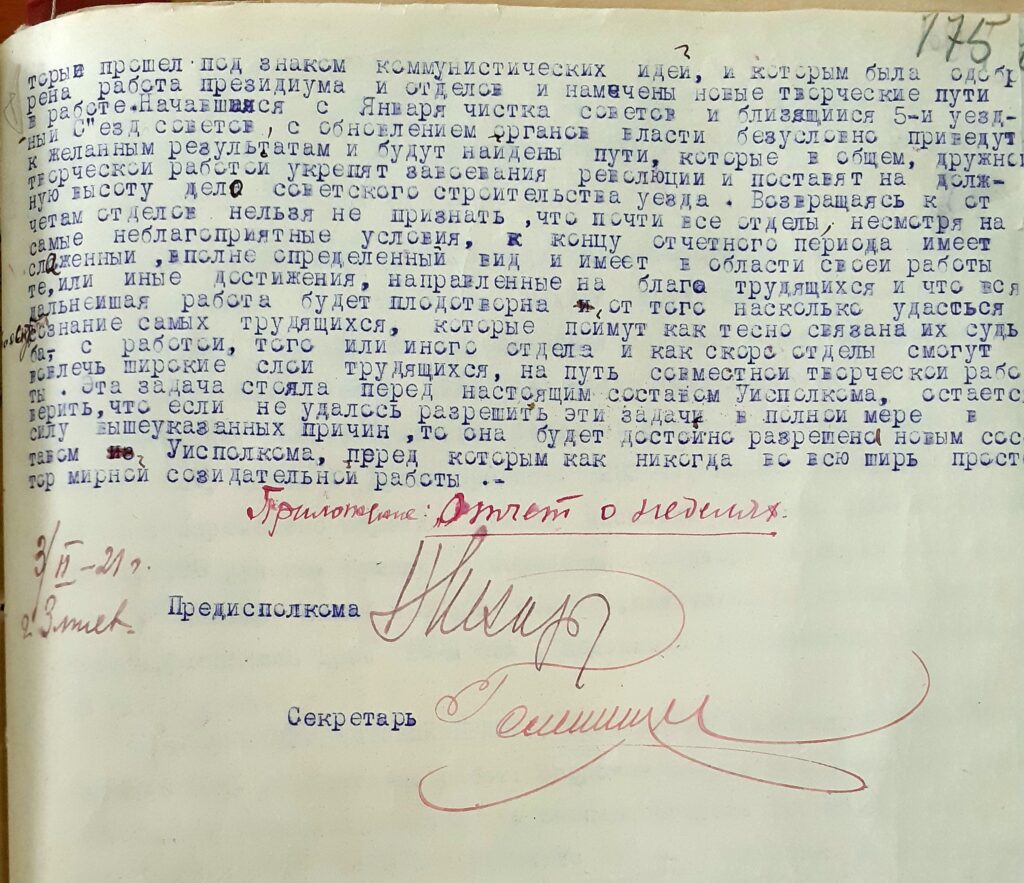 175
торые прошел под знаком коммунистических идей, и которым была одобр
рена работа президиума и отделов и намечены новые творческие пути
в работе. Начавшаяся с Января чистка советов и близящиися 5-и уезд-
ный С"езд советов, с обновлением органов власти безусловно приведут
к желанным результатам и будут найдены пути, которые в общем, дружно
творческой работой укрепят завоевания революции и поставят на долж-
ную высоту дело советского строительства уезда. Возвращаясь к от
четам отделов нельзя не признать, что почти все отделы, несмотря на
самые неблагоприятные условия, к концу отчетного периода имеет
слаженный, вполне определенный вид и имеет в области своеи работы
те, или иные достижения, направленные на благо трудящихся и что вся
дальнеишая работа будет плодотворна от того насколько удасться
сознание самых трудящихся, которые поимут как тесно связана их судь
ба, с работой, того или иного отдела и как скоро отделы смогут
вовлечь широкие слои трудящихся, на путь совместной творческой рабо
ты. Эта задача стояла перед настоящим составом Уисполкома, остаетс
верить, что если не удалось разрешить эти задачи в полной мере в
силу вышеуказанных причин, то она будет достойно разрешена новым сос
тавом из Уисполкома, перед которым как никогда во всю ширь просто
тор мирной созидательной работы .-
Приложение: Отчет о неделях.
3/II-21 г.
г. Змиев.
Предисполкома
Секретарь